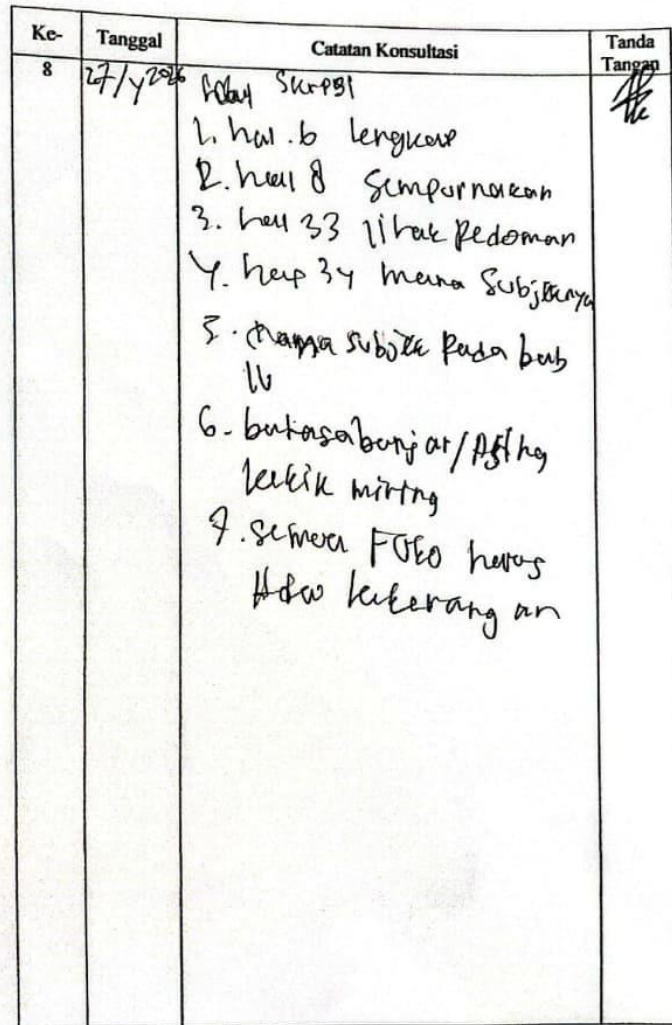 Ke-
Tanggal
Catatan Konsultasi
Tanda
Tangan
8
27/4 2026
Skripsi
1. hal. 6 lengkap
2. hal 8 sempurnakan
3. hal 33 lihat pedoman
4. hal 34 mana subjeknya
5. nama subjek pada bab
IV
6. bahasa banjar/Asing
ketik miring
7. semua Foto harus
Ada keterangan